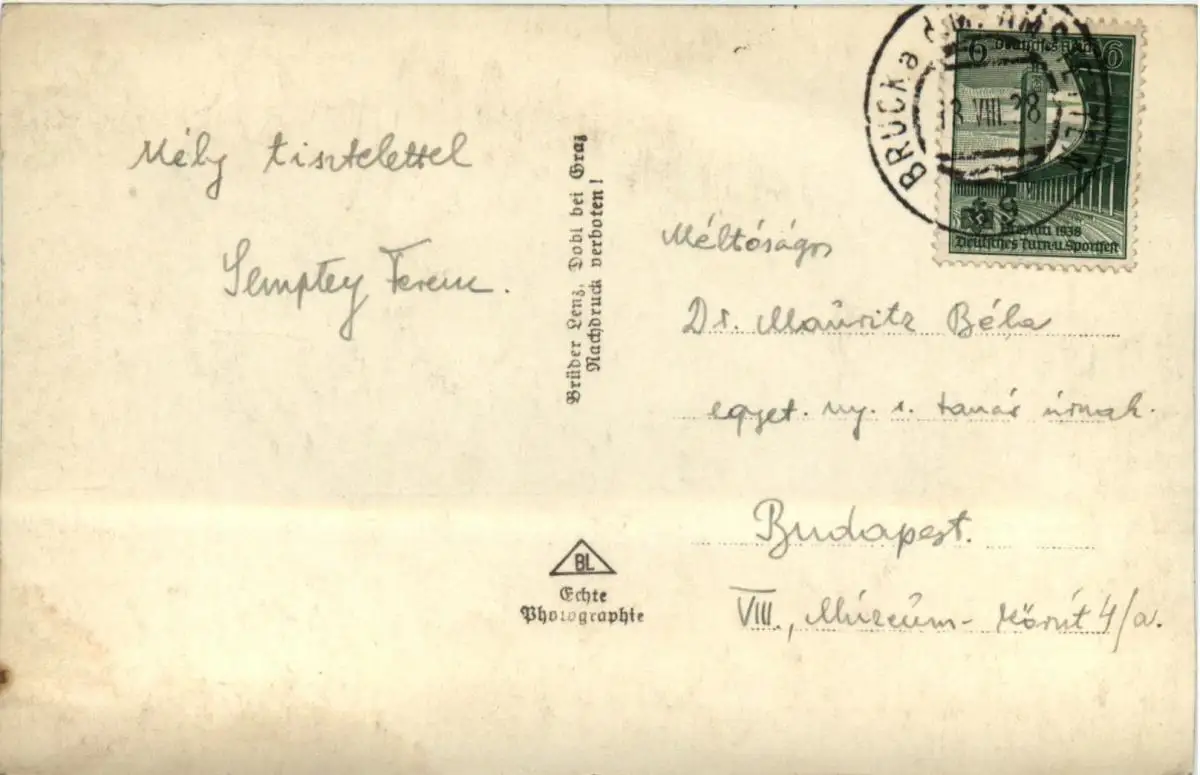 Mély tisztelettel
Semptey Ferenc.
Brüder Lenz, Dobl bei Graz
Nachdruck verboten!
BL
Echte
Photographie
BRUCK a d. M. - AMSTETTEN
13 VIII. 38
9
6 Deutsches Reich 6
Breslau 1938
Deutsches Turn-u. Sportfest
Méltóságos
Dr. Mauritz Béla
egyet. ny. r. tanár úrnak.
Budapest.
VIII., Múzeum-körút 4/a.